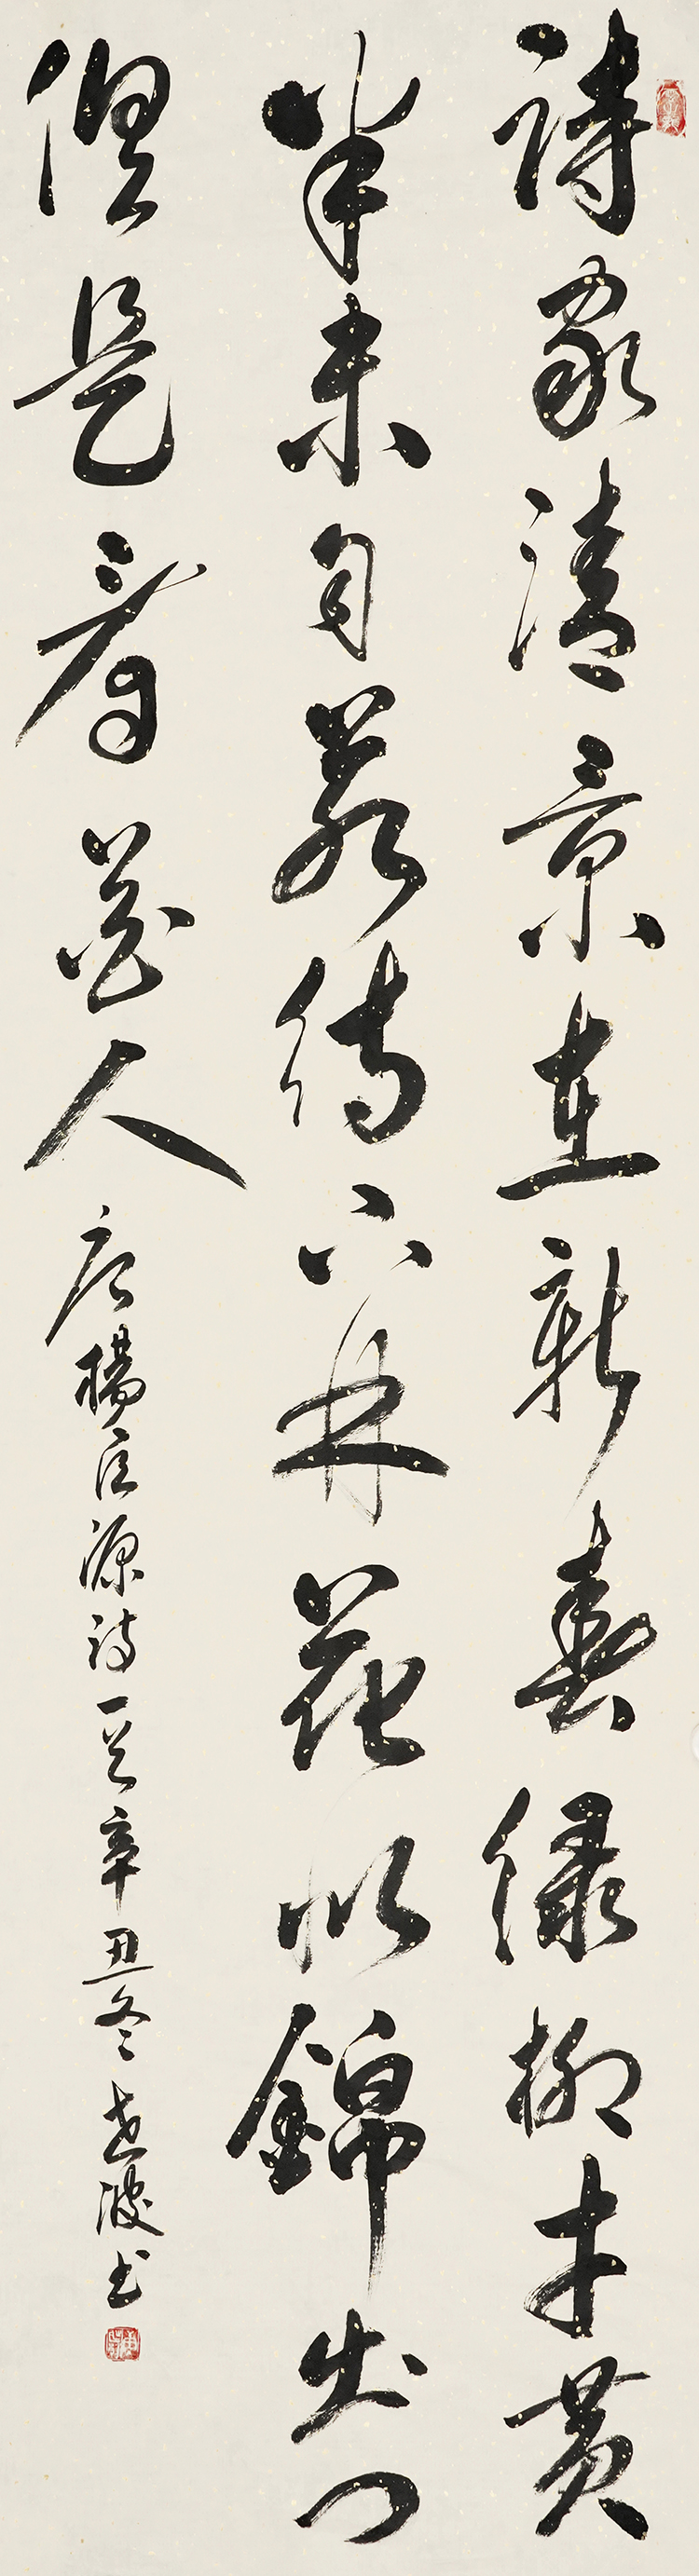 詩家清景在新春綠柳才黃
半未勻若待上林花似錦出門
俱是看花人
唐楊巨源詩一首辛丑冬志波书